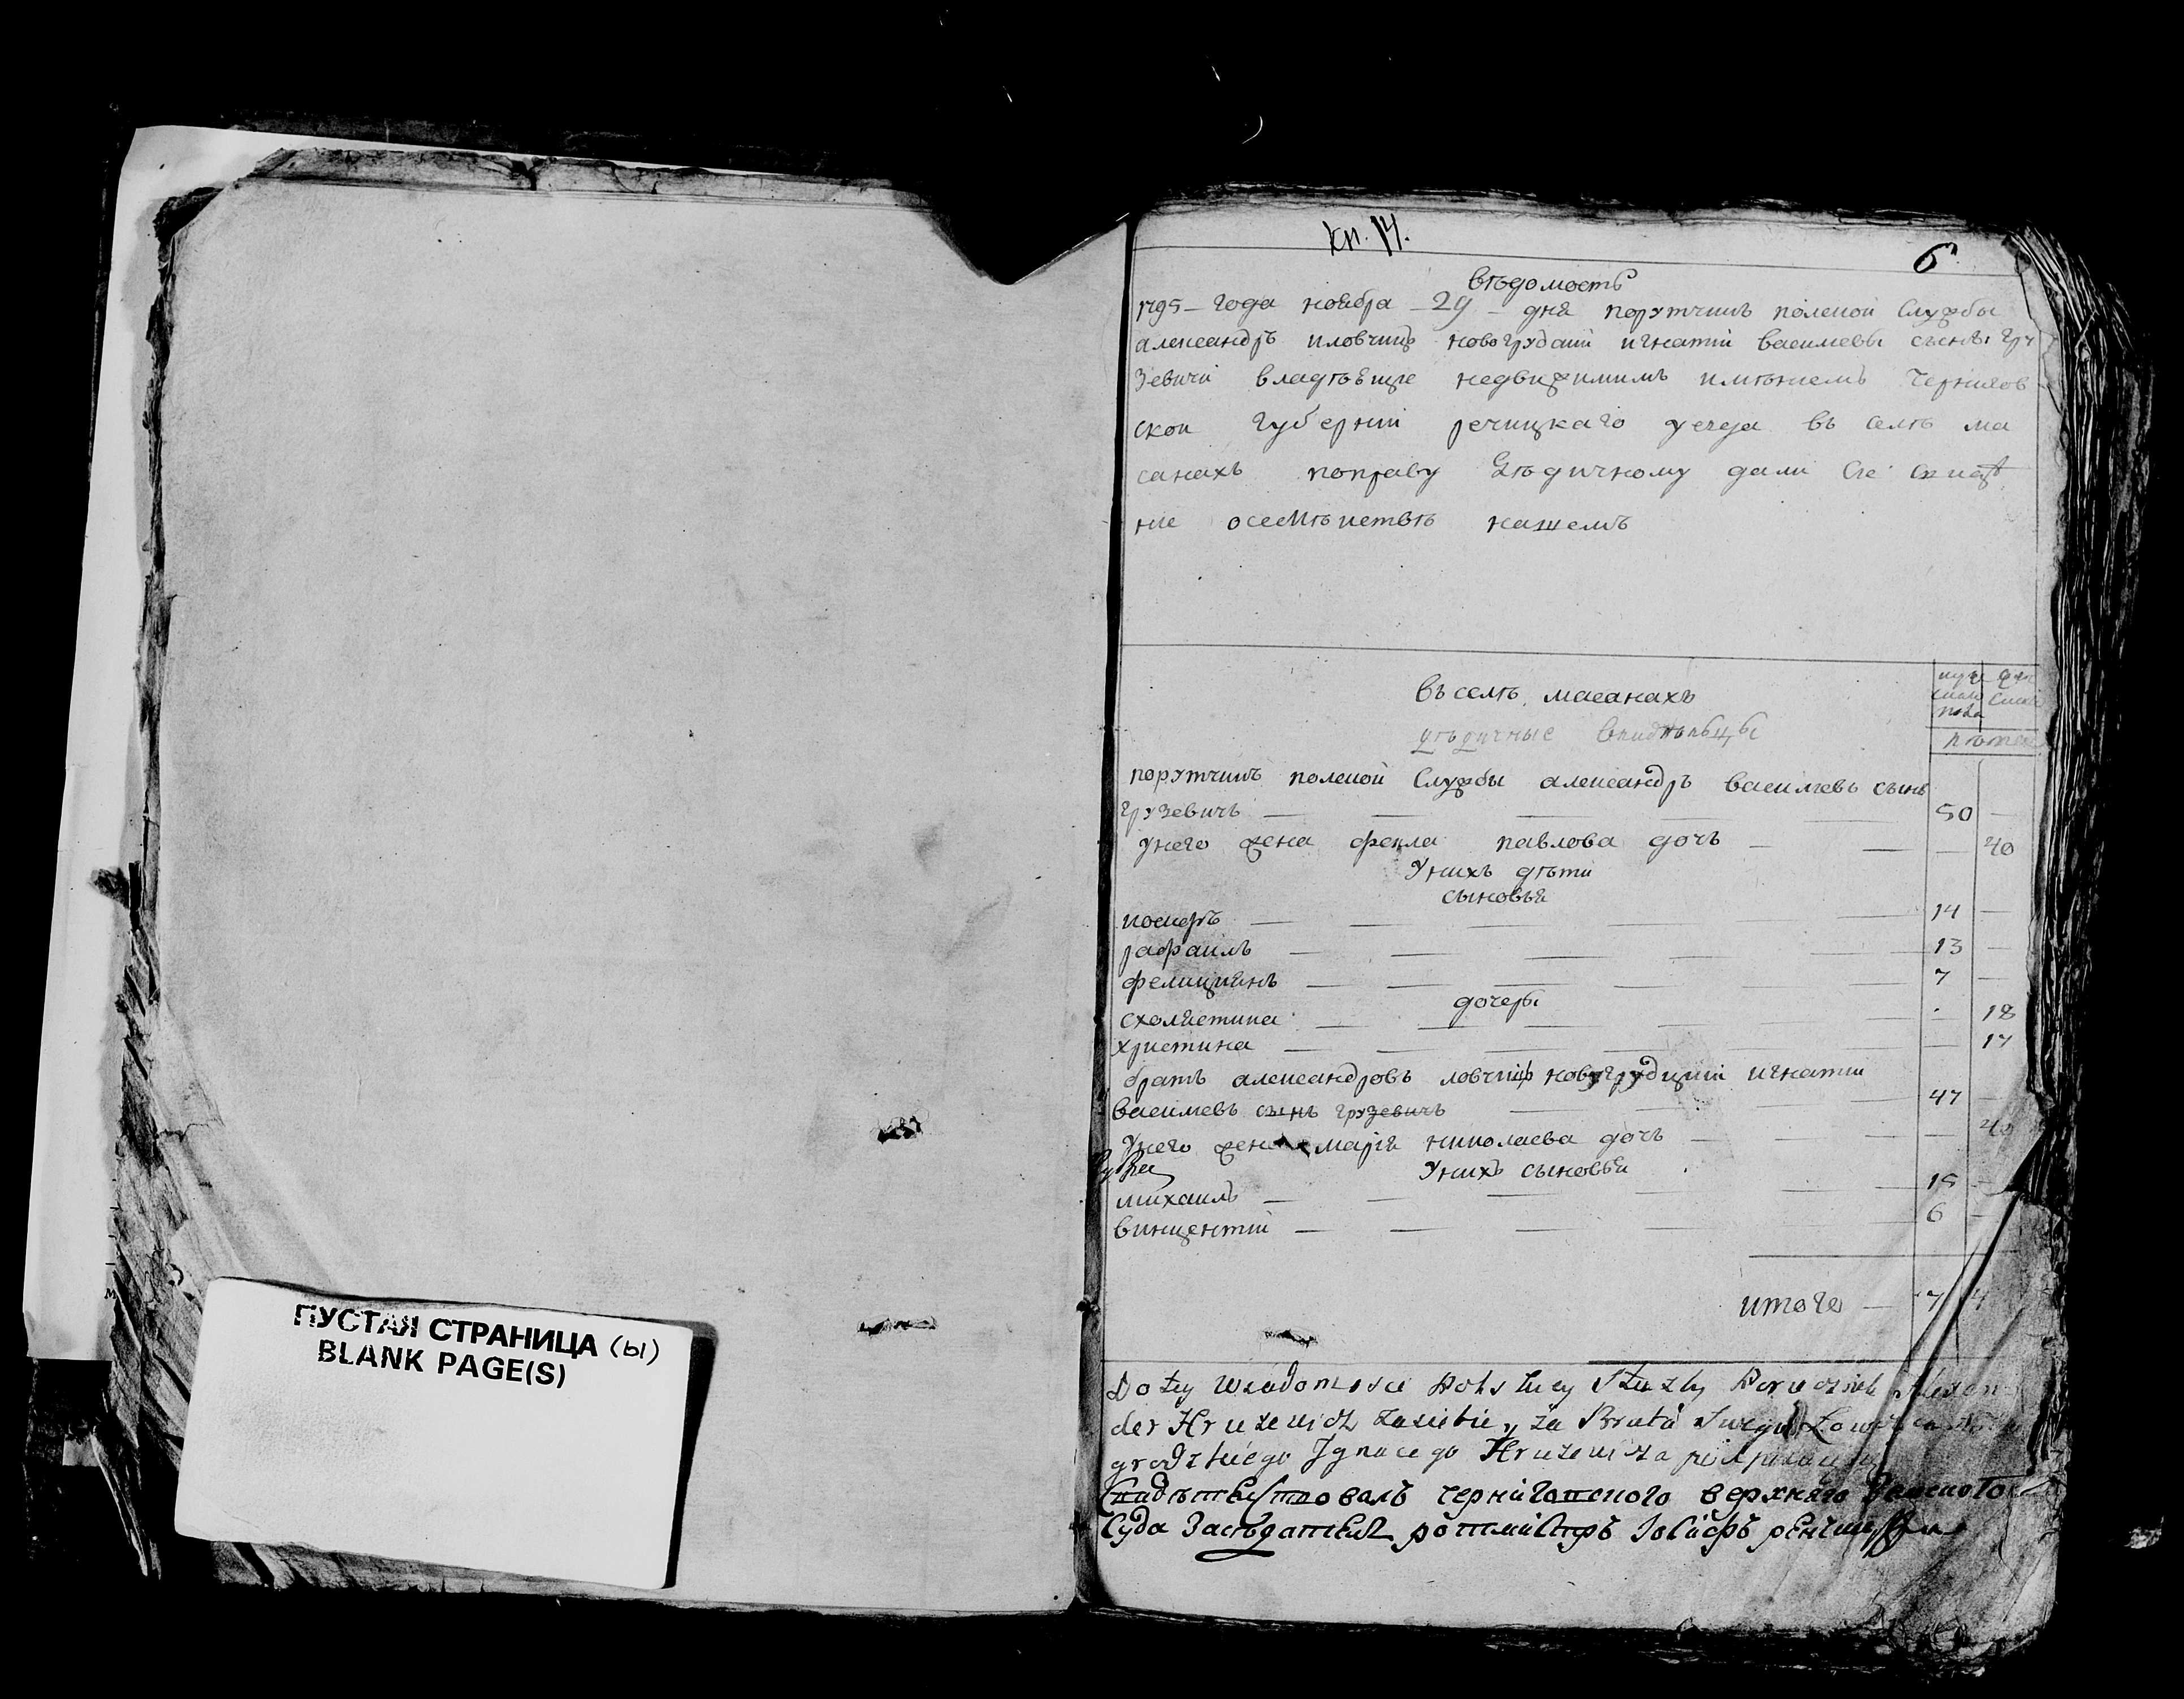 кп. 14.
6
вѣдомость
1795 – года ноября – 29 – дня порутчикъ полской службы
александръ иловчиц новогрудский игнатий васильевы сыны гру
зевичи владѣюще недвижимымъ имѣниемъ Чернигов
скои губернии речицкаго уезда въ селѣ ма
санахъ поправу дѣдичному дали сие
ние осемѣистве нашемъ
въ селѣ масанахъ
дѣдичные
порутчикъ полской службы александръ васильевъ сынъ
грузевичъ — — — 50 —
Унего жена фекла павлова дочъ — — — 40
Унихъ дѣти
сыновья
иосифъ — — — 14 —
рафаилъ — — — 13 —
фелициянъ — — — 7 —
дочери
схолястика — — — 18
христина — — — 17
братъ александровъ ловчиц новугрудцкий игнатий
васильевъ сынъ грузевичъ — — 47 —
Унего жена мария николаева дочъ — — — 40
Унихъ сыновья
михаилъ — — — 15 —
винцентий — — — 6 —
итого — 7 4
Do tey Wiadomosci Polskiey Służby Porucznik Alexan
der Hruzewicz zasiebie y za Brata Swego
grodzkiego Ignacego Hruzewicza
Свидѣтелствовалъ черниговского верхнего Земского
Суда Засѣдатель ротмистръ Иосифъ
ПУСТАЯ СТРАНИЦА (Ы)
BLANK PAGE(S)